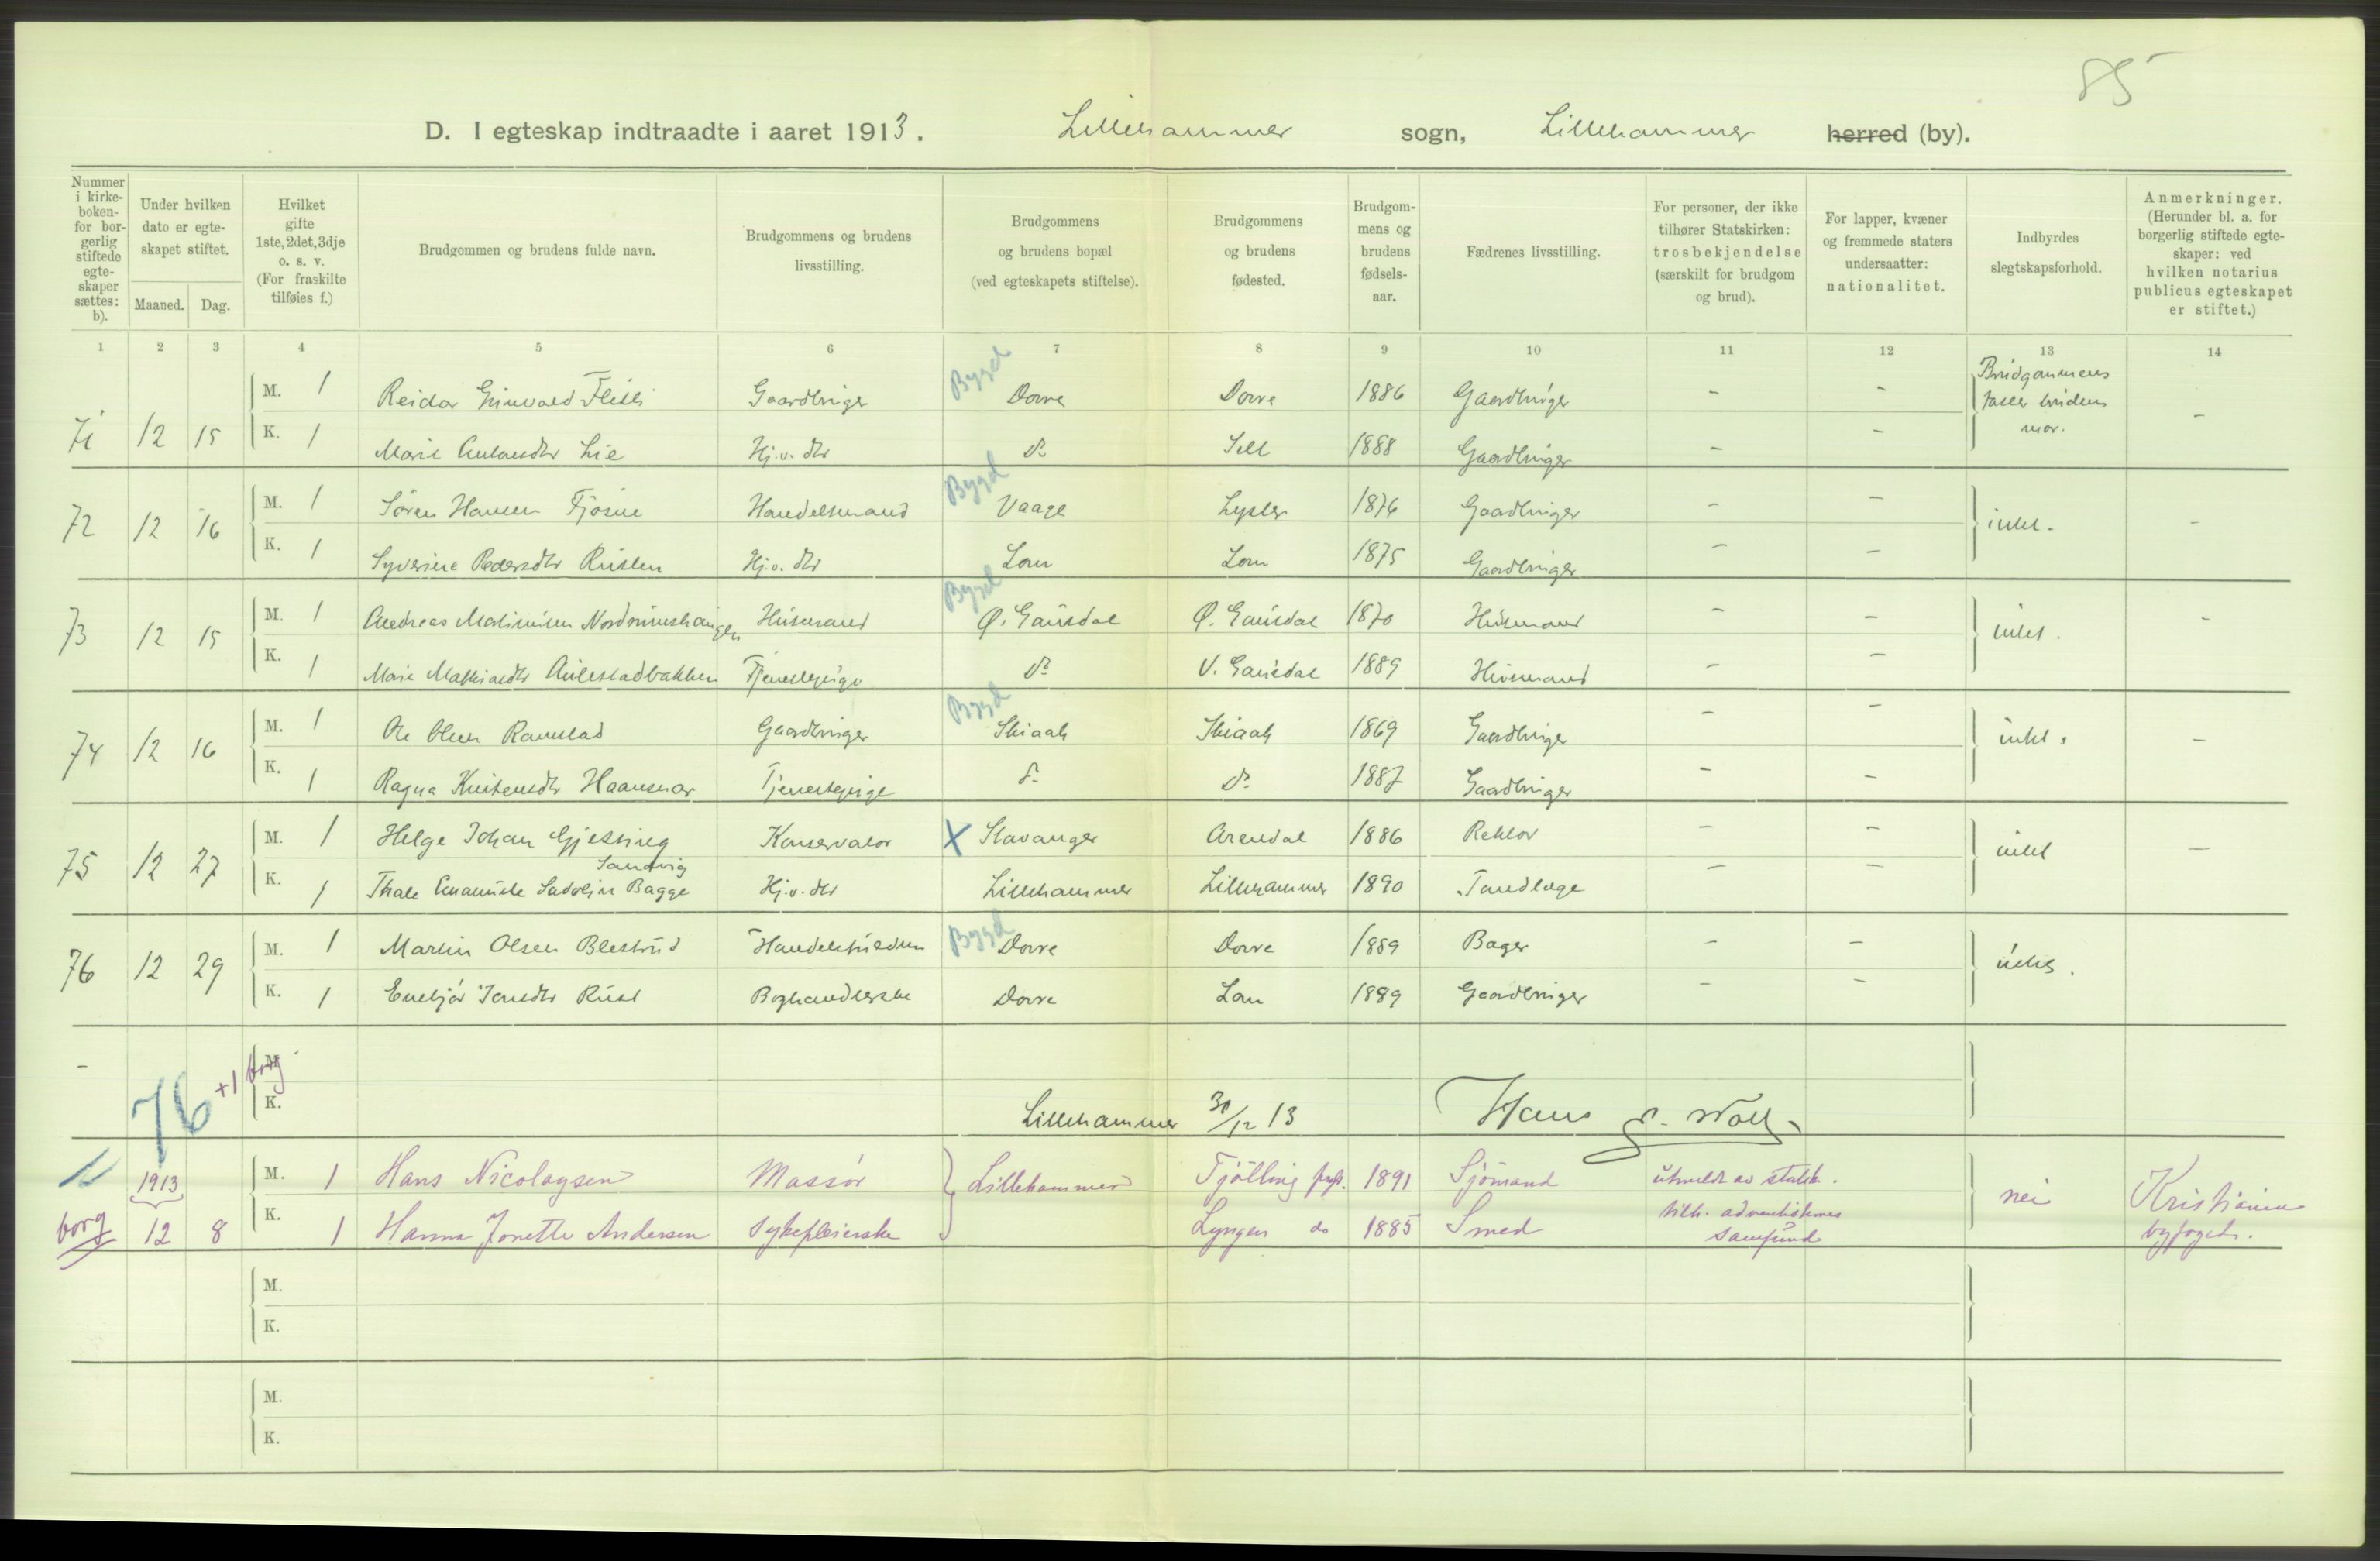 85
D. I egteskap indtraadte i aaret 1913. Lillehammer sogn, Lillehammer herred (by).
Nummer i kirke-boken- for bor-gerlig stiftede egte-skaper sættes: b).
Under hvilken dato er egte-skapet stiftet.
Maaned. Dag.
Hvilket gifte 1ste, 2det, 3dje o. s. v. (For fraskilte tilføies f.)
Brudgommen og brudens fulde navn.
Brudgommens og brudens livsstilling.
Brudgommens og brudens bopæl (ved egteskapets stiftelse).
Brudgommens og brudens fødested.
Brudgom-mens og brudens fødsels-aar.
Fædrenes livsstilling.
For personer, der ikke tilhører Statskirken: trosbekjendelse (særskilt for brudgom og brud).
For lapper, kvæner og fremmede staters undersaatter: nationalitet.
Indbyrdes slegtskapsforhold.
Anmerkninger. (Herunder bl. a. for borgerlig stiftede egte-skaper: ved hvilken notarius publicus egteskapet er stiftet.)
1 2 3 4 5 6 7 8 9 10 11 12 13 14
Bygd
M. 1 Reidar Dovre Dovre 1886 Gaardbruger - - Brudgommens
71 12 15 brudens mor. -
K. 1 Lie Hj.v. dtr do Sell 1888 Gaardbruger - -
Bygd
M. 1 Søren Hansen Fjøsne Handelsmand Vaage Lyster 1876 Gaardbruger - -
72 12 16 intet. -
K. 1 Syverine Pedersdtr Rusten Hj.v. dtr Lom Lom 1875 Gaardbruger - -
Bygd
M. 1 Andreas Husmand Ø. Gausdal Ø. Gausdal 1870 Husmand - -
73 12 15 intet. -
K. 1 Marie Mathiasdtr Aulestadbakken Tjenestepige do V. Gausdal 1889 Husmand - -
Bygd
M. 1 Ole Olsen Ramstad Gaardbruger Skiaak Skiaak 1869 Gaardbruger - -
74 12 16 intet. -
K. 1 Ragna Tjenestepige do do 1887 Gaardbruger - -
M. 1 Helge Johan Gjessing Konservator X Stavanger Arendal 1886 Rektor - -
75 12 27 Sandvig intet -
K. 1 Thale Bagge Hj.v. dtr Lillehammer Lillehammer 1890 Tandlæge - -
Bygd
M. 1 Martin Olsen Blestrud Dovre Dovre 1889 Bager - -
76 12 29 intet.
K. 1 Rust Boghandlerske Dovre Lom 1889 Gaardbruger - -
- M.
76 +1 borg
K. Lillehammer 30/12 13 Hans
M. 1 Hans Nicolaysen Massør Lillehammer Tjølling prgj. 1891 Sjömand utmeldt av statsk.
1913 nei Kristiania
borg 12 8 K. 1 Hanna Jonette Andersen Sykepleierske Lyngen do 1885 Smed tilh. adventisternes
samfund byfoged.
M.
K.
M.
K.